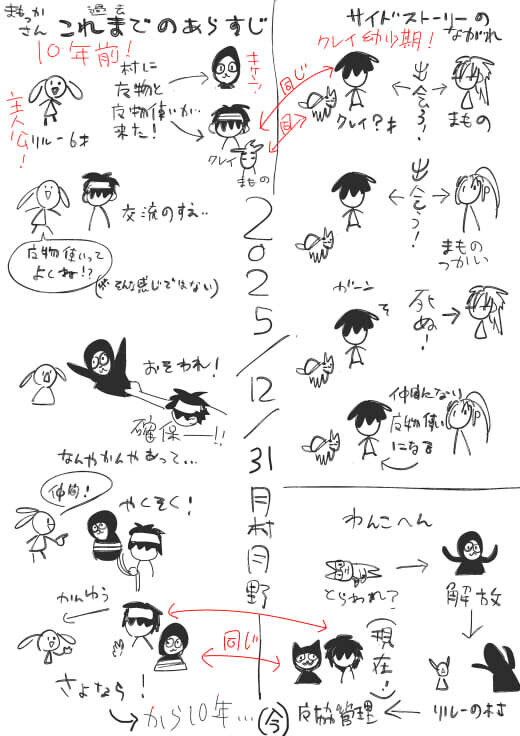 まもっかさん 過去 これまでのあらすじ
10年前!
主人公!
リルー6才
村に
魔物と
魔物使いが…
来た!
まもの
クレイ
まもの
交流のすえ…
魔物使いって
よくね!?
(※そんな感じではない)
おそわれ!
確保ー!!
なんやかんやあって…
仲間!
やくそく!
かんゆう
さよなら!
から10年…
今
2025/12/31
月村月野
サイドストーリーの
ながれ
クレイ幼少期!
同じ
同
クレイ?才
出会う!
まもの
出会う!
まもの
つかい
ガーン
死ぬ!
仲間になり
魔物使い
になる
わんこへん
とらわれ?
解放
リルーの村
魔協管理
(現在!)
同じ